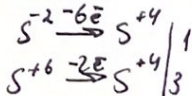 S⁻² -6ē→ S⁺⁴ | 1
S⁺⁶ -2ē→ S⁺⁴ | 3